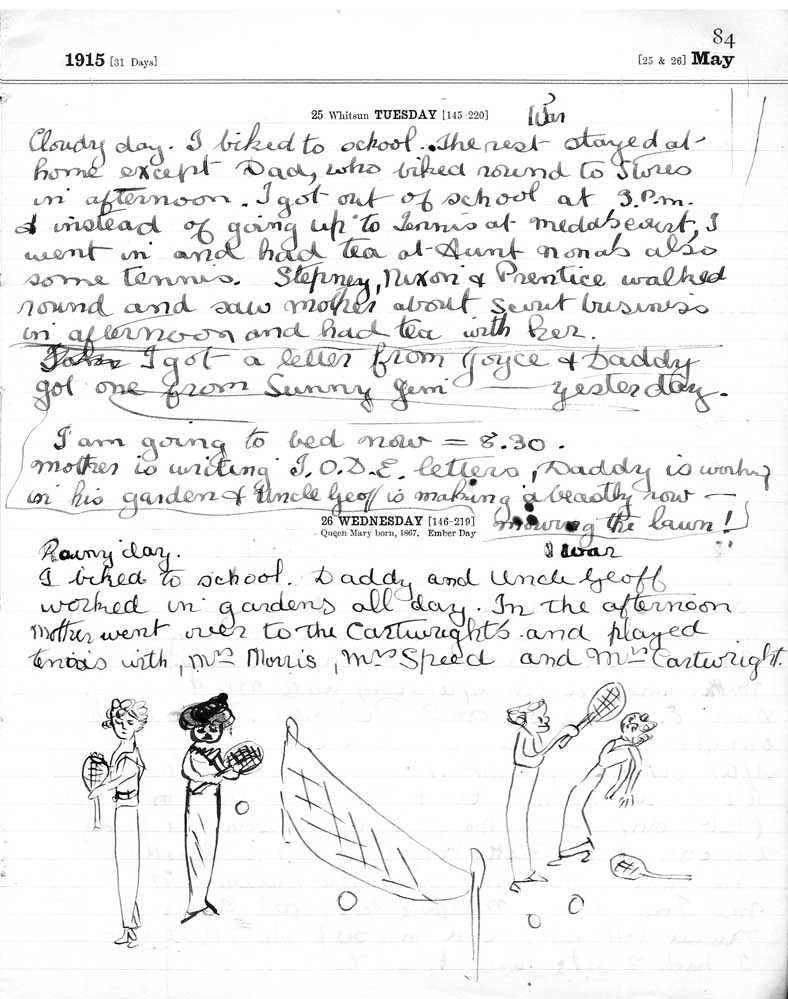 84
1915 [31 Days] [25 & 26] May
25 Whitsun TUESDAY [145-220] War
Cloudy day. I biked to school. The rest stayed at
home except Dad, who biked round to Stores
in afternoon. I got out of school at 3.P.m.
& instead of going up to Tennis at I
went in and had tea at Aunt nona's also
some tennis. Stepney, Nixon & Prentice walked
round and saw mother about Scout business
in afternoon and had tea with her.
I got a letter from Joyce & Daddy
got one from Sunny Jem — yesterday.
I am going to bed now = 8.30.
mother is writing I.O.D.E. letters, Daddy is working
in his garden & Uncle Geoff is making a beastly row —
mowing the lawn!
26 WEDNESDAY [146-219]
Queen Mary born, 1867. Ember Day
War
Rainy day.
I biked to school. Daddy and Uncle Geoff
worked in gardens all day. In the afternoon
Mother went over to the Cartwright's and played
tennis with, Mrs Morris, Mrs Speed and Mrs Cartwright.